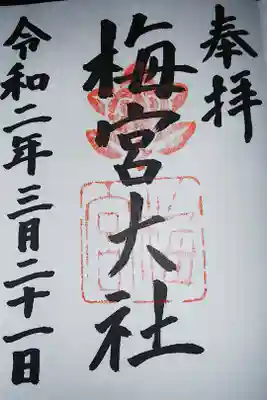 奉拝
梅宮大社
令和二年三月二十一日